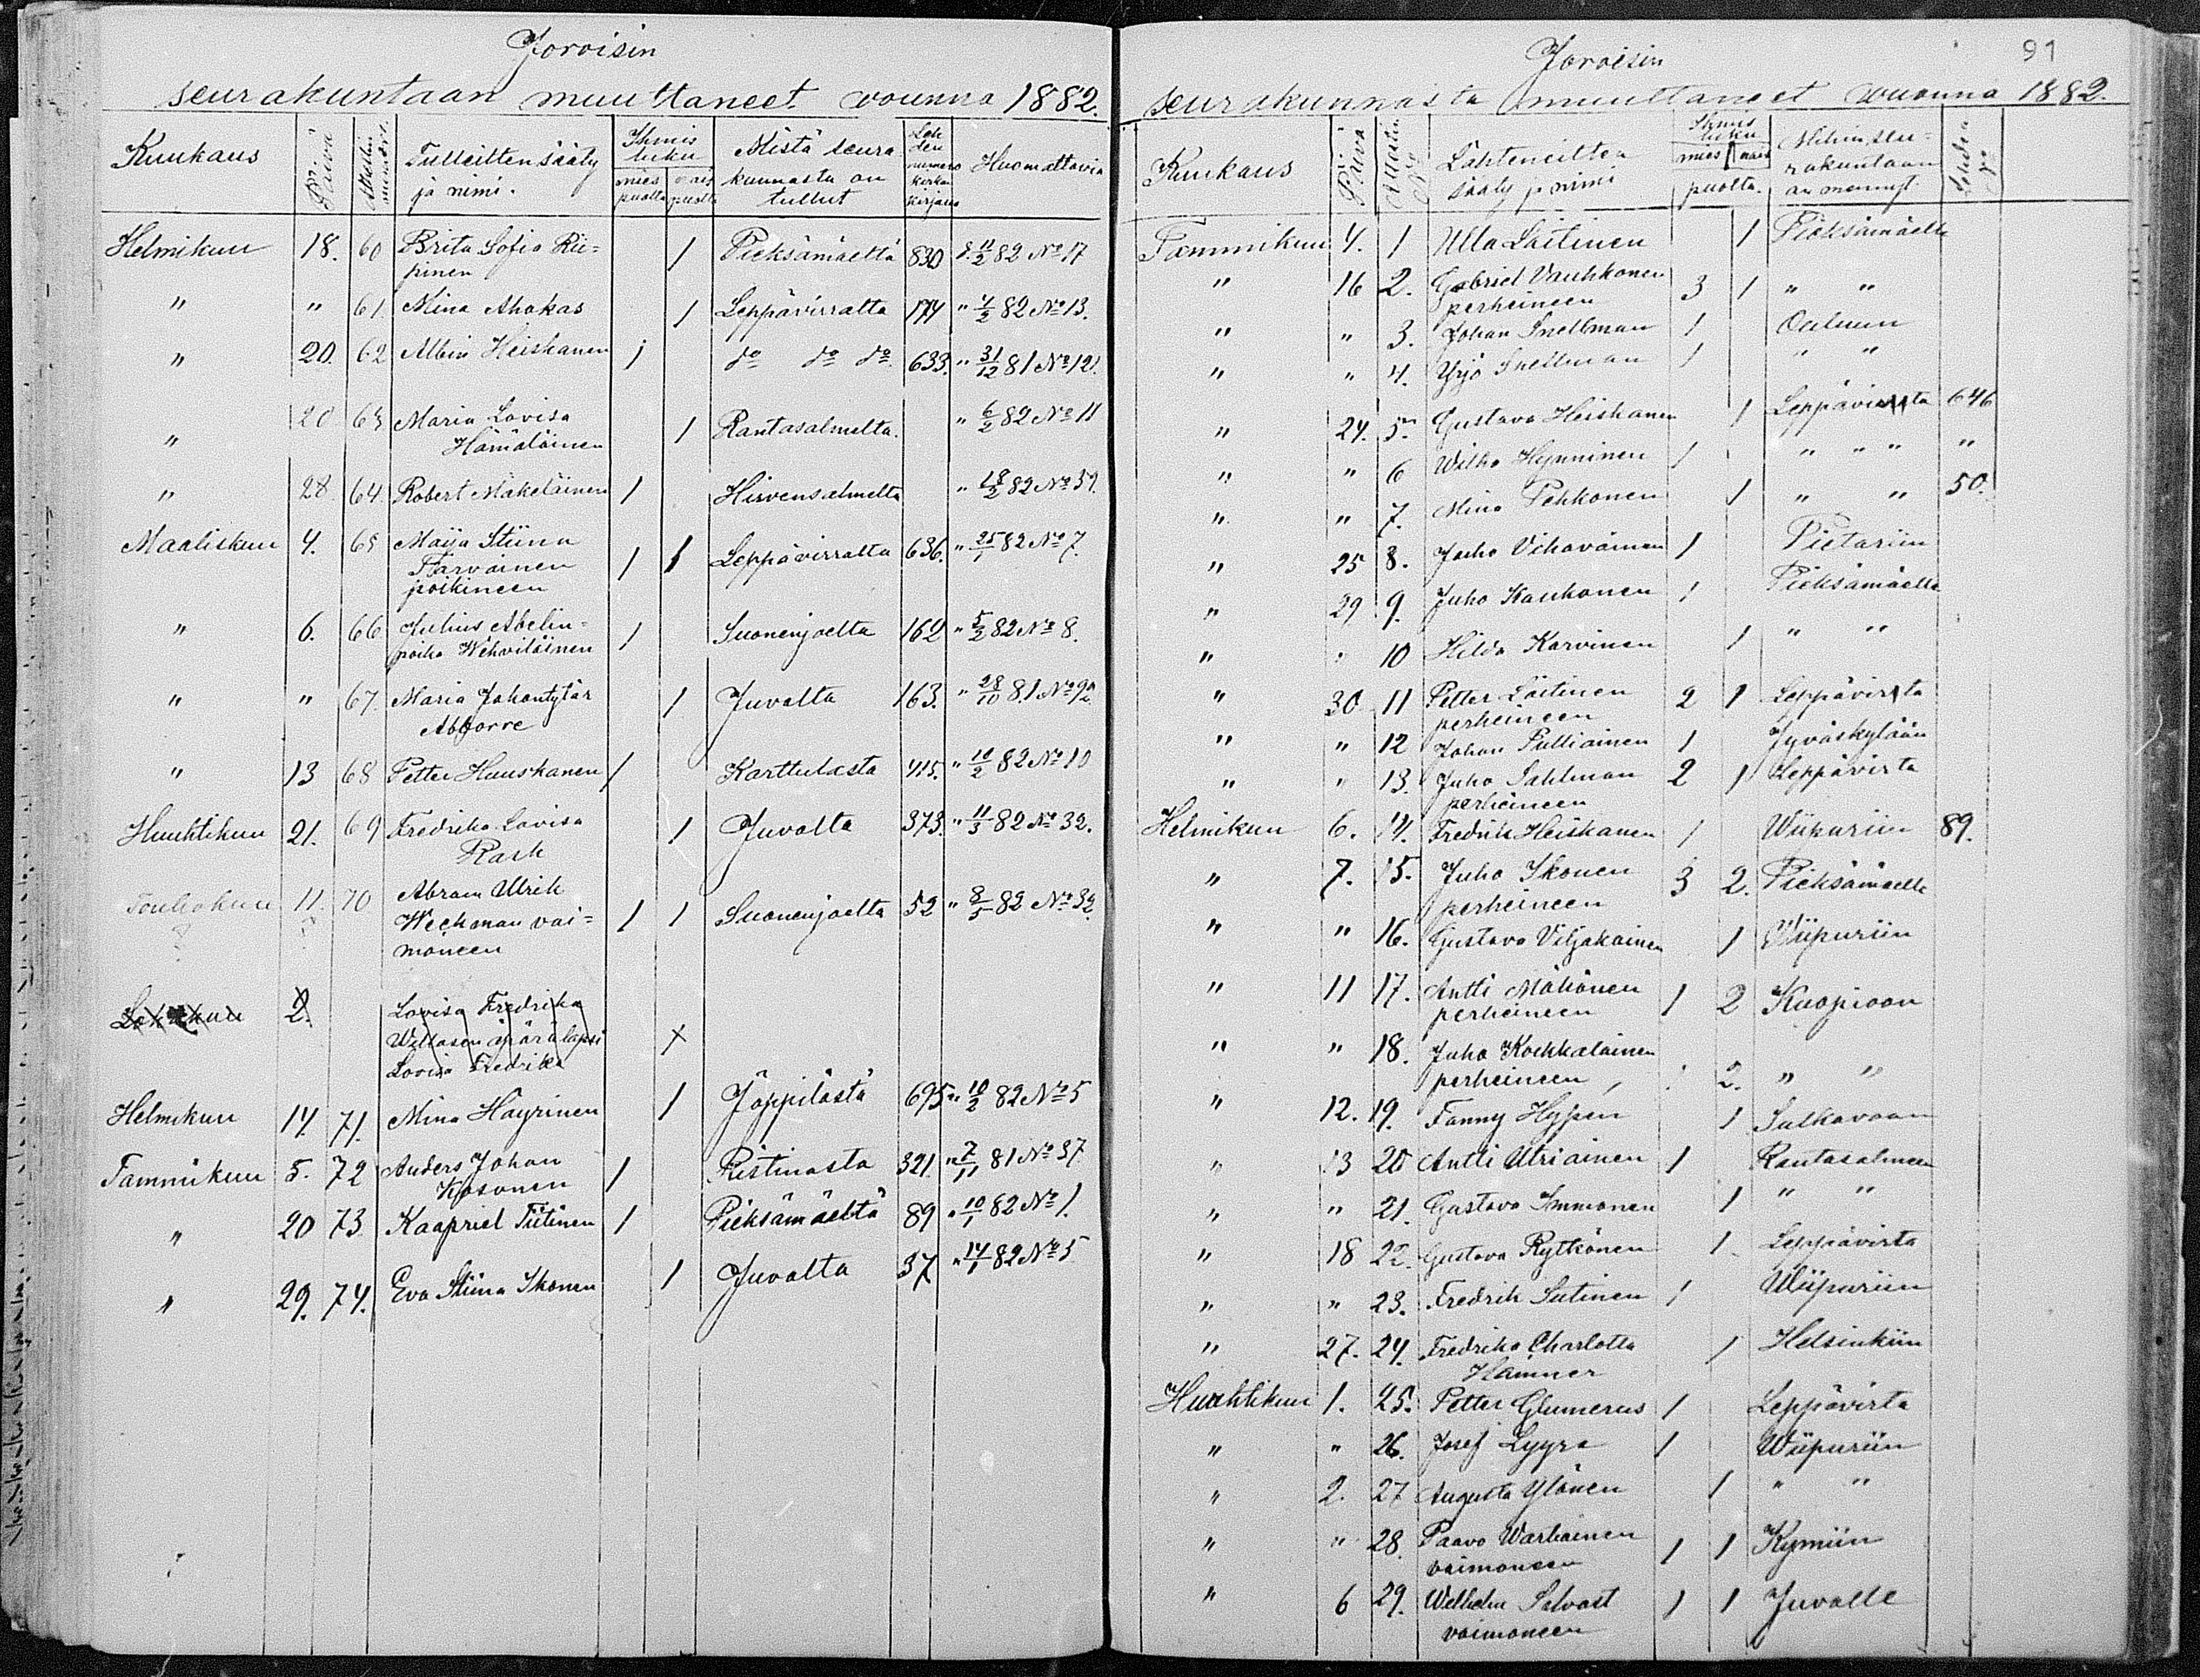 Joroisin
seurakuntaan muuttaneet vuonna 1882.
Kuukaus Päivä Tulleitten sääty ja nimi. Ihmis luku mies puolta vais puolta Mistä seurakunnasta on tullut Lehden numero kirkonkirjass Huomattavia
Helmikuu 18. 60 Brita Sofia Rii= 1 Pieksämäeltä 830 11/2 82 No 17
pinen
" " 61 Mina Ahokas 1 Leppävirralta 174 " 4/2 82 No 13.
" 20. 62 Albin Heiskanen 1 do do do 633. " 31/12 81 No 121.
" 20 63 Maria Lovisa 1 Rantasalmelta. " 6/2 82 No 11
Hämäläinen
" 28 64 Robert Mäkeläinen 1 Hirvensalmelta " 18/2 82 No 59.
Maaliskuu 4. 65 Maija Stiina 1 1 Leppävirralta 636. " 25/1 82 No 7.
Tarvainen
poikineen
" 6. 66 Julius Abelin= 1 Suonenjoelta 162 " 5/2 82 No 8.
poika Wehviläinen
" " 67. Maria Johantytär 1 Juvalta 163. " 28/10 81 No 92
Abforre
" 13 68 Petter Huuskanen 1 Karttulasta 415. " 10/2 82 No 10
Huuhtikuu 21. 69 Fredrika Lovisa 1 Juvalta 373. " 11/3 82 No 32.
Rask
Toukokuu 11. 70 Abram Ulrik 1 1 Suonenjoelta 52 " 8/5 82 No 32
Weckman vai=
moneen
Lokakuu 2. Lovisa Fredrika
äpärälapsi
Lovisa Fredrika
Helmikuu 14. 71. Mina Häyrinen 1 Jäppilästä 695 " 10/2 82 No 5
Tammikuu 5. 72 Anders Johan 1 Ristinasta 321. " 7/11 81 No 37
Kosonen
" 20 73. Kaapriel Tiitinen 1 Pieksämäeltä 89 " 10/1 82 No 1.
" 29. 74. Eva Stiina Ikonen 1 Juvalta 37 " 14/1 82 No 5
91
Joroisin
seurakunnasta muuttaneet vuonna 1882.
Kuukaus Päivä Lähteneitten sääty ja nimi Ihmis luku mies vais puolta. Mihin seurakuntaan on mennyt. Lehden No
Tammikuu 4. 1 Ulla Laitinen 1 Pieksämäelle
" 16 2. Gabriel Vauhkonen 3 1 " "
perheineen
" " 3. Johan Snellman 1 Ouluun
" " 4. Yrjö Snellman 1 " "
" 24. 5. Gustava Heiskanen 1 Leppävirta 646
" " 6 Wilho Hynninen 1 " " " "
" " 7. Mina Pekkonen 1 " " 50.
" 25 8. Juho Vihavainen 1 Pietariin
" 29 9. Juho Kaukonen 1 Pieksämäelle
" " 10 Hilda Karvinen 1 " "
" 30 11 Petter Laitinen 2 1 Leppävirta
perheineen
" " 12 Johan Pulliainen 1 Jyväskylään
" " 13. Juho Sahlman 2 1 Leppävirta
perheineen
Helmikuu 6. 14. Fredrik Heiskanen 1 Wiipuriin 89.
" 7. 15. Juho Ikonen 3 2. Pieksämäelle
perheineen
" " 16. Gustava Viljakainen 1 Wiipuriin
" 11 17. Antti Mähönen 1 2 Kuopioon
perheineen
" " 18. Juho Kockkalainen
perheineen 2. " "
" 12. 19. Fanny Hypén 1 Sulkavaan
" 13 20 Antti Utriainen 1 Rantasalmeen
" " 21. Gustava Immonen 1 " "
" 18 22. Gustava Rytkönen 1 Leppävirta
" " 23. Fredrik Sutinen 1 Wiipuriin
" 27. 24. Fredrika Charlotta 1 Helsinkiin
Hamner
Huuhtikuu 1. 25. Petter Glumerus 1 Leppävirta
" " 26. Josef Lyyra 1 Wiipuriin
" 2. 27 Augusta Ylönen 1 " "
" " 28. Paavo Wartiainen 1 1 Kymiin
vaimoneen
" 6 29. Welhelm Salvast 1 1 Juvalle
vaimoneen